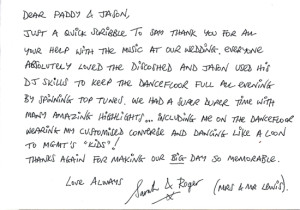 DEAR PADDY & JASON,
JUST A QUICK SCRIBBLE TO SAY THANK YOU FOR ALL
YOUR HELP WITH THE MUSIC AT OUR WEDDING. EVERYONE
ABSOLUTELY LOVED THE DISCOSHED AND JASON USED HIS
DJ SKILLS TO KEEP THE DANCEFLOOR FULL ALL EVENING
BY SPINNING TOP TUNES. WE HAD A SUPER DUPER TIME WITH
MANY AMAZING HIGHLIGHTS... INCLUDING ME ON THE DANCEFLOOR
WEARING MY CUSTOMISED CONVERSE AND DANCING LIKE A LOON
TO MGMT'S "KIDS"!
THANKS AGAIN FOR MAKING OUR BIG DAY SO MEMORABLE.
LOVE ALWAYS
Sarah & Roger (MRS & MR LEWIS).
X